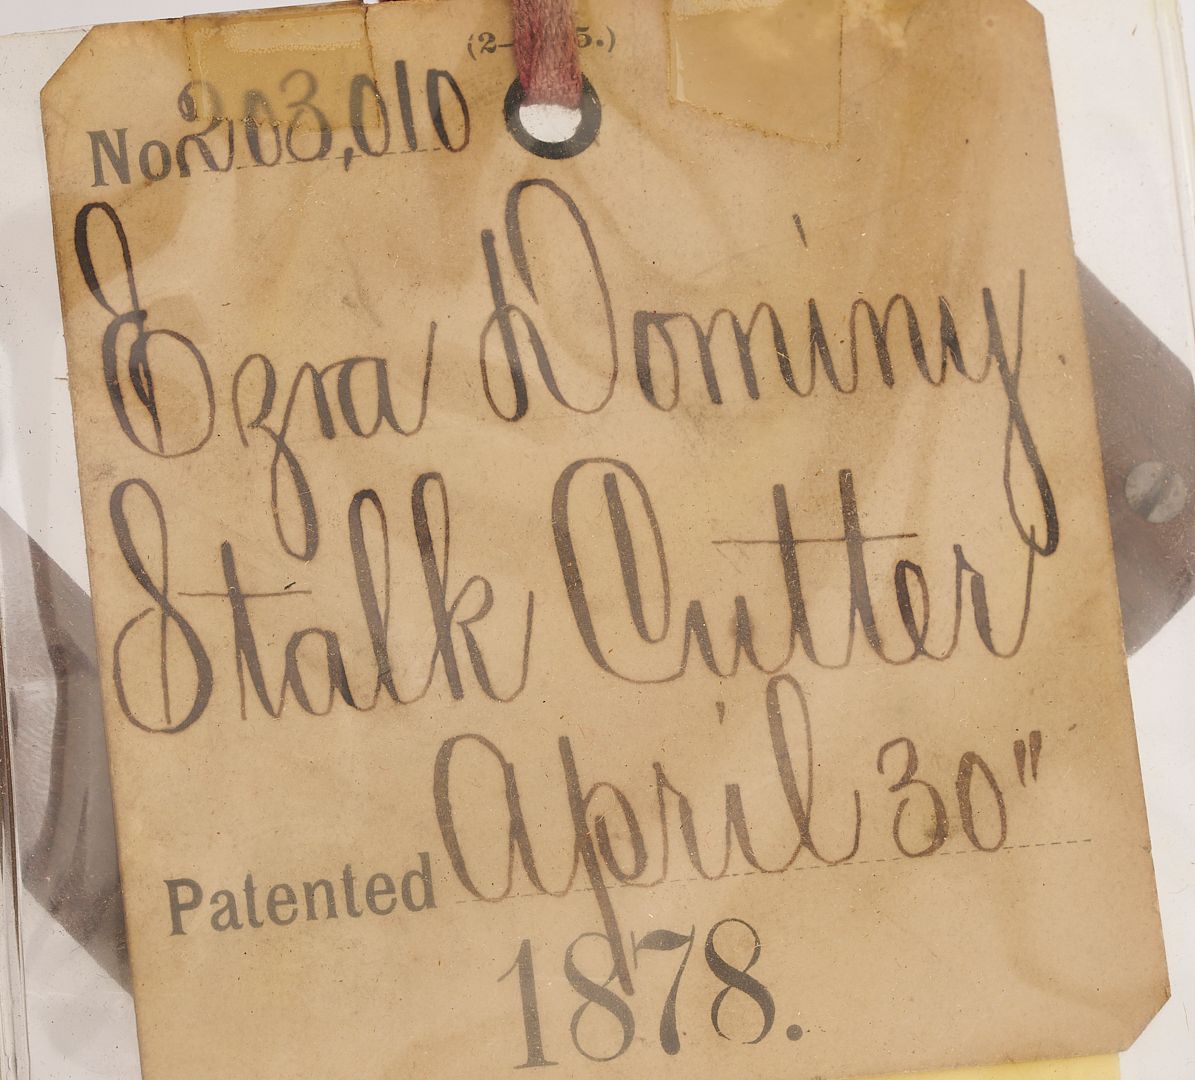 No. 203,010
Ezra Dominy
Stalk Cutter
Patented April 30"
1878.